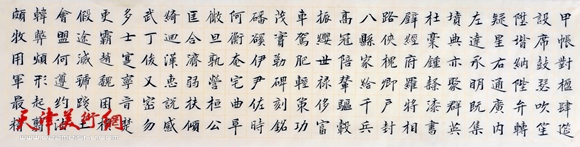 甲帳對楹肆筵
設席鼓瑟吹笙
陞階納陛弁轉
疑星右通廣內
左達承明既集
墳典亦聚群英
杜稾鍾隸漆書
壁經府羅將相
路俠槐卿戶封
八縣家給千兵
高冠陪輦驅轂
振纓世祿侈富
車駕肥輕策功
茂實勒碑刻銘
磻溪伊尹佐時
阿衡奄宅曲阜
微旦孰營桓公
匡合濟弱扶傾
綺迴漢惠說感
武丁俊乂密勿
多士寔寧晉楚
更霸趙魏困橫
假途滅虢踐土
會盟何遵約法
韓弊煩刑起翦
頗牧用軍最精
天津美術網